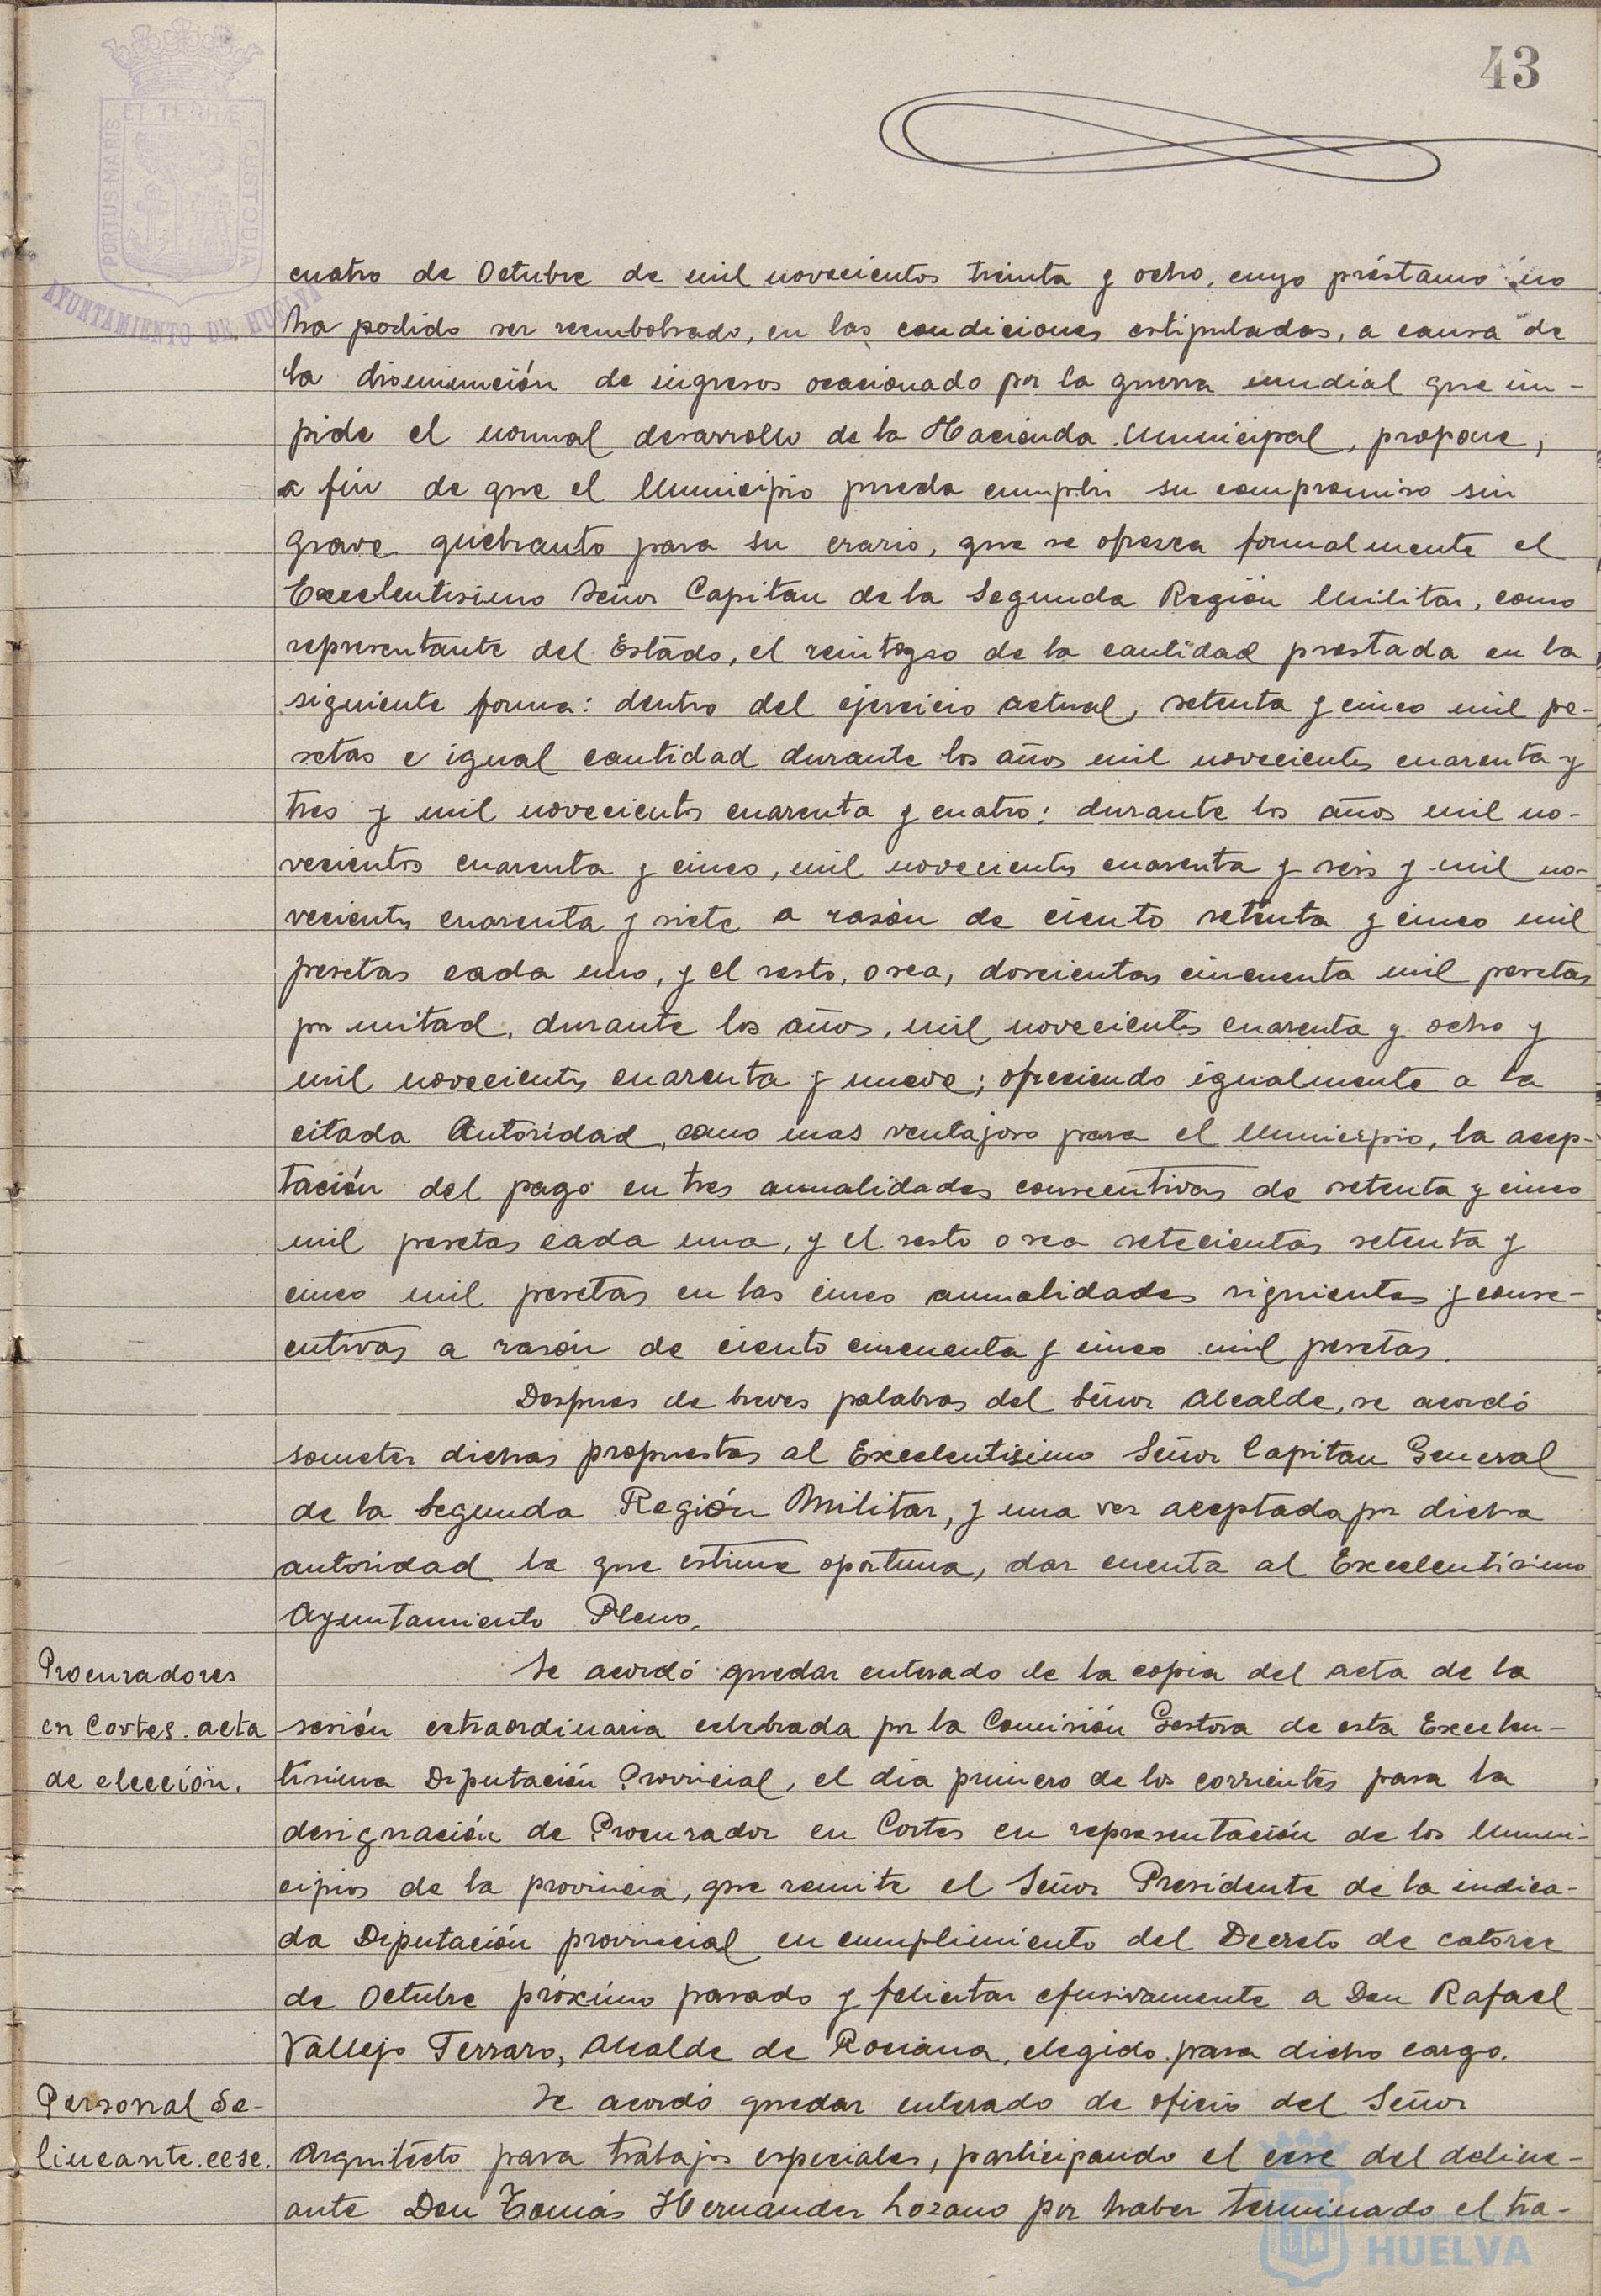 43
PORTUS MARIS ET TERRÆ CUSTODIA
AYUNTAMIENTO DE HUELVA
cuatro de Octubre de mil novecientos treinta y ocho, cuyo préstamo no
ha podido ser reembolsado, en las condiciones estipuladas, a causa de
la disminución de ingresos ocacionado por la guerra mundial que im-
pide el normal desarrollo de la Hacienda Municipal, propone,
a fin de que el Municipio pueda cumplir su compromiso sin
grave quebranto para su erario, que se ofrezca formalmente el
Excelentisimo Señor Capitan de la Segunda Región Militar, como
representante del Estado, el reintegro de la cantidad prestada en la
siguiente forma: dentro del ejercicio actual, setenta y cinco mil pe-
setas e igual cantidad durante los años mil novecientos cuarenta y
tres y mil novecientos cuarenta y cuatro: durante los años mil no-
vecientos cuarenta y cinco, mil novecientos cuarenta y seis y mil no-
vecientos cuarenta y siete a razón de ciento setenta y cinco mil
pesetas cada uno, y el resto, o sea, doscientas cincuenta mil pesetas
por mitad, durante los años, mil novecientos cuarenta y ocho y
mil novecientos cuarenta y nueve; ofreciendo igualmente a la
citada Autoridad, como mas ventajoso para el Municipio, la acep-
tación del pago en tres anualidades consecutivas de setenta y cinco
mil pesetas cada una, y el resto o sea setecientas setenta y
cinco mil pesetas en las cinco anualidades siguientes y conse-
cutivas a razón de ciento cincuenta y cinco mil pesetas.
Despues de breves palabras del Señor Alcalde, se acordó
someter dichas propuestas al Excelentisimo Señor Capitan General
de la Segunda Región Militar, y una vez aceptada por dicha
autoridad la que estime oportuna, dar cuenta al Excelentisimo
Ayuntamiento Pleno.
Procuradores
en Cortes. acta
de elección.
Se acordó quedar enterado de la copia del acta de la
sesión extraordinaria celebrada por la Comisión Gestora de esta Excelen-
tisima Diputación Provincial, el dia primero de los corrientes para la
designación de Procurador en Cortes en representación de los Muni-
cipios de la provincia, que remite el Señor Presidente de la indica-
da Diputación provincial en cumplimiento del Decreto de catorce
de Octubre próximo pasado y felicitar efusivamente a Don Rafael
Vallejo Ferraro, Alcalde de Rociana, elegido para dicho cargo.
Personal De-
lineante. cese.
Se acordó quedar enterado de oficio del Señor
Arquitecto para trabajos especiales, participando el cese del deline-
ante Don Tomás Hernandez Lozano por haber terminado el tra-
HUELVA